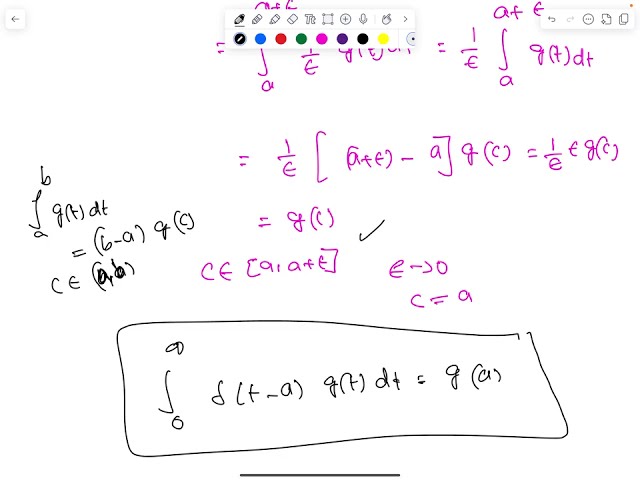 a+ε
= ∫ₐ 1/ε g(t) dt = 1/ε ∫ₐ^(a+ε) g(t) dt
= 1/ε [ (a+ε) - a ] g(c) = 1/ε ε g(c)
= g(c) ✓
c ∈ [a, a+ε]
ε → 0
c = a
∫ₐᵇ g(t) dt
= (b-a) g(c)
c ∈ (a, b)
∫₀^∞ δ(t-a) g(t) dt = g(a)